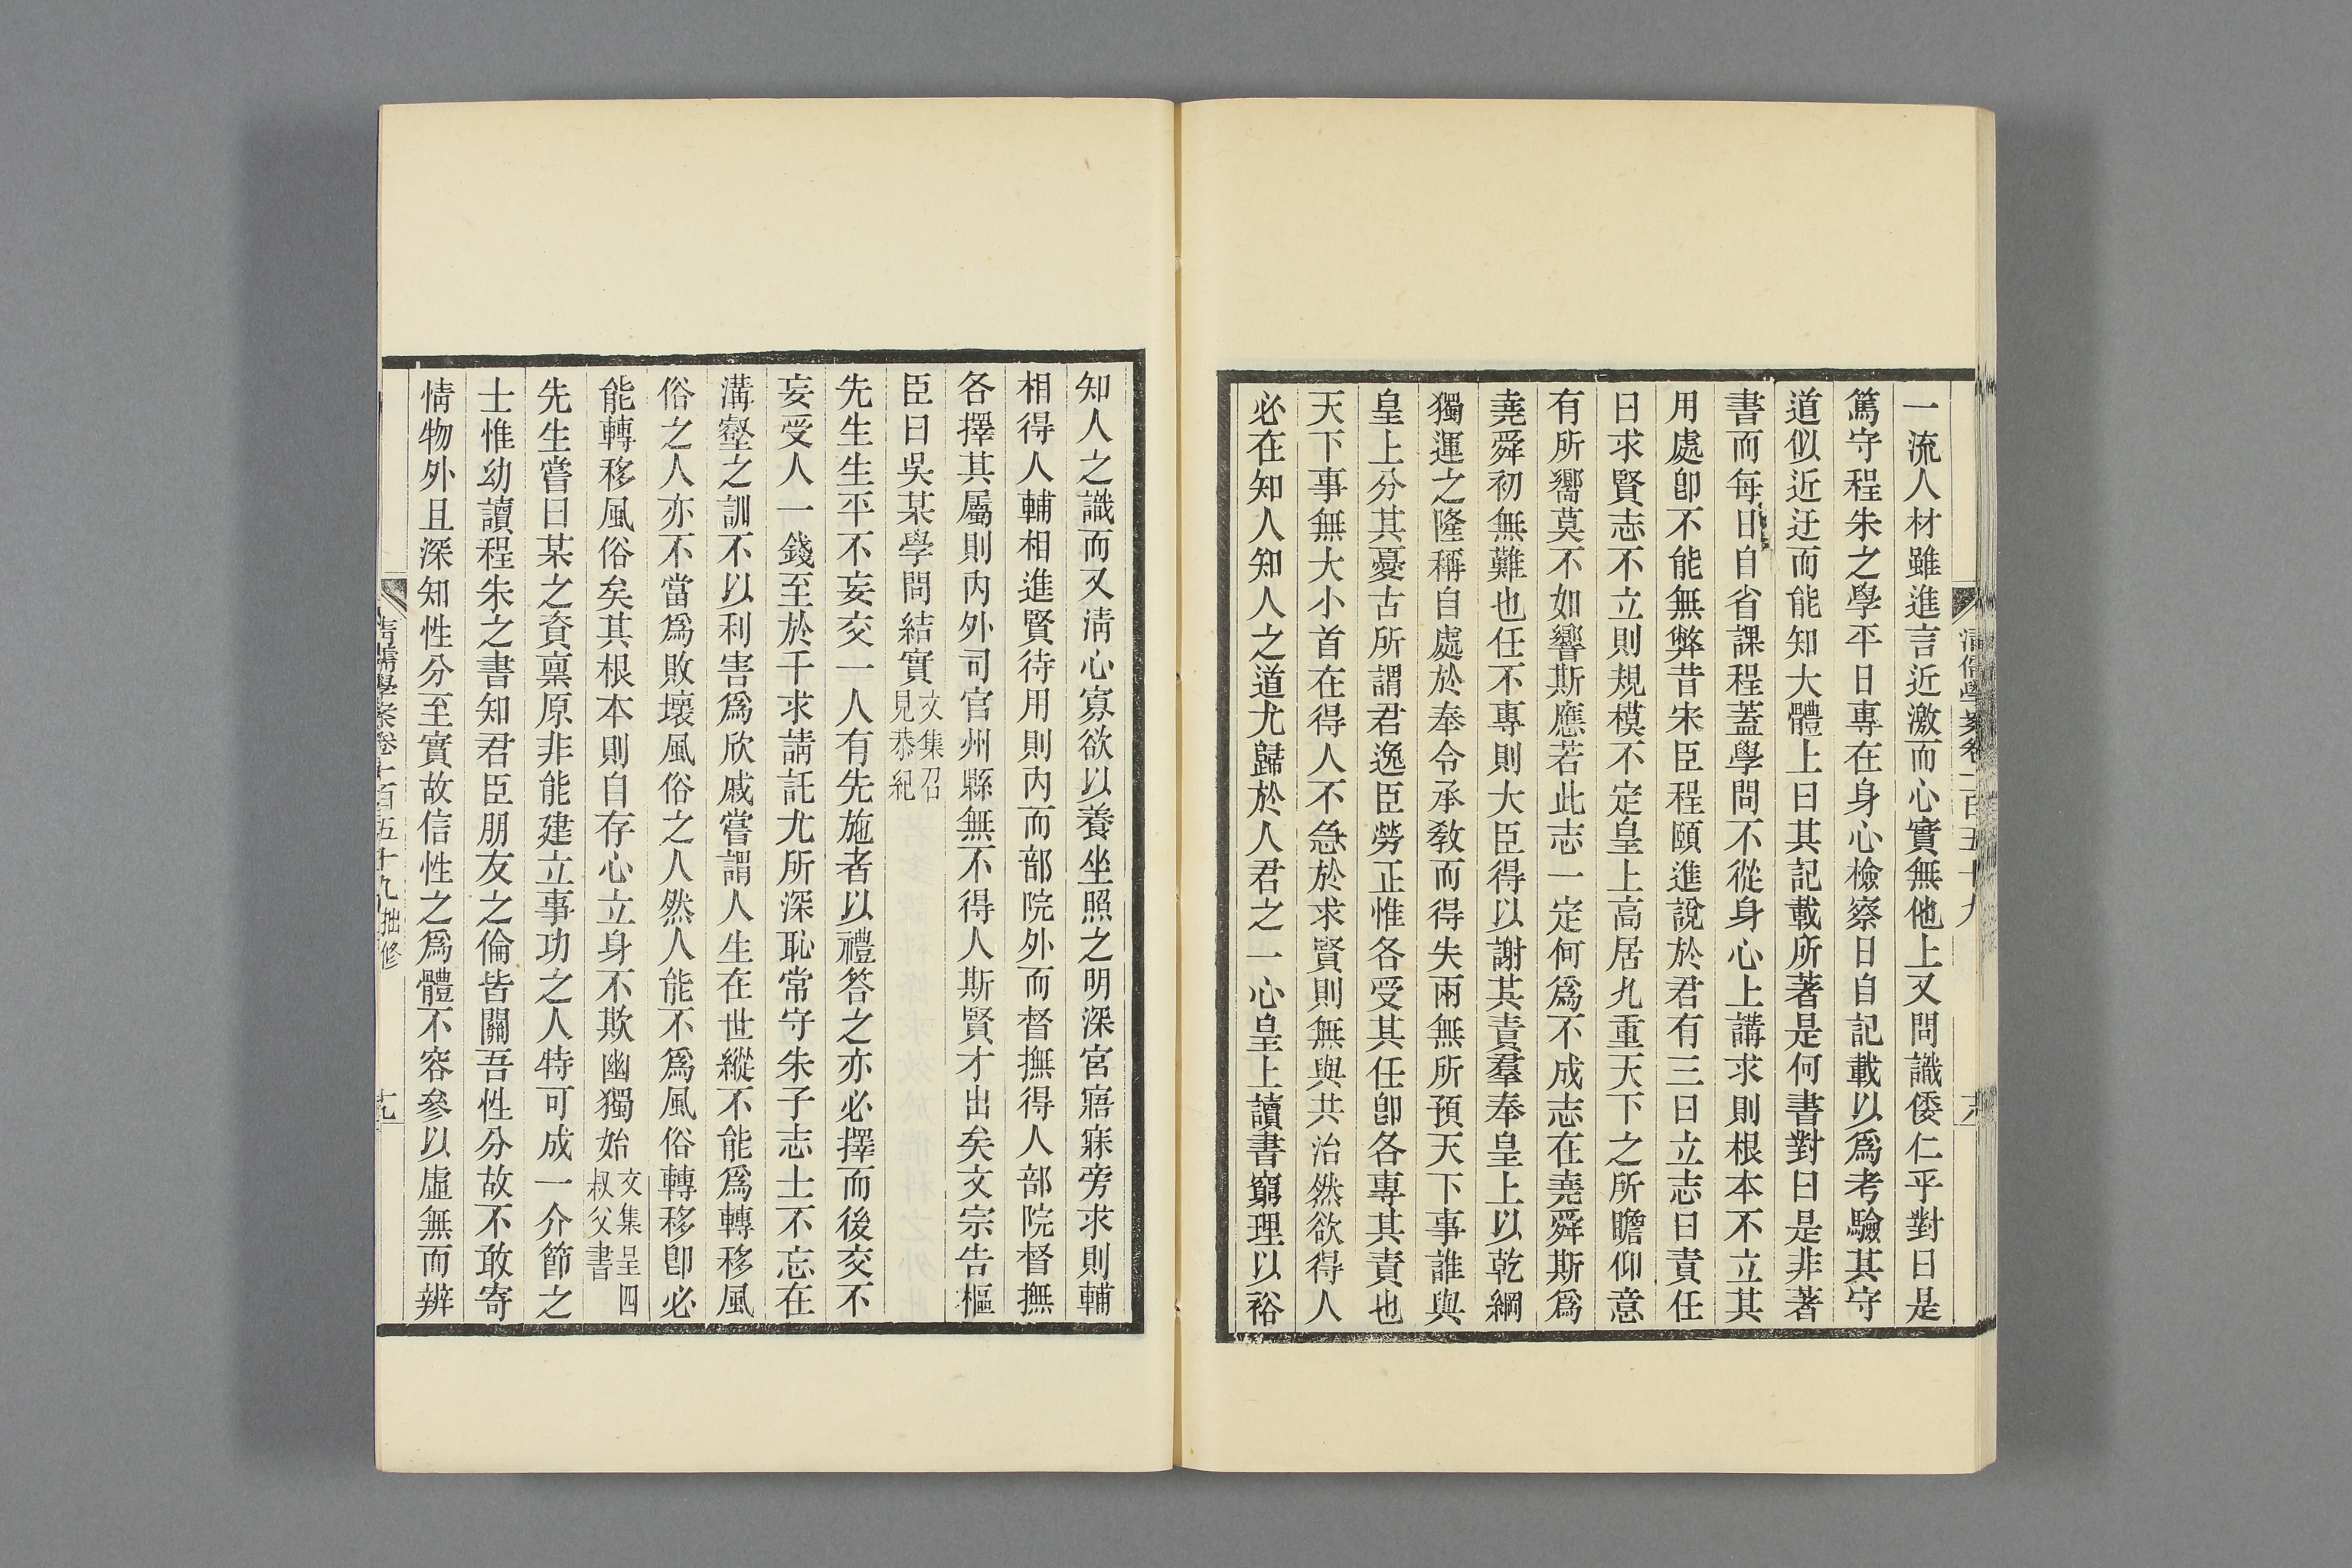 一流人材雖進言近激而心實無他上又問識倭仁乎對曰是
篤守程朱之學平日專在身心檢察日自記載以爲考驗其守
道似近迂而能知大體上曰其記載所著是何書對曰是非著
書而每日自省課程蓋學問不從身心上講求則根本不立其
用處卽不能無弊昔宋臣程頤進說於君有三曰立志曰責任
曰求賢志不立則規模不定皇上高居九重天下之所瞻仰意
有所嚮莫不如響斯應若此志一定何爲不成志在堯舜斯爲
堯舜初無難也任不專則大臣得以謝其責羣奉皇上以乾綱
獨運之隆稱自處於奉令承敎而得失兩無所預天下事誰與
皇上分其憂古所謂君逸臣勞正惟各受其任卽各專其責也
天下事無大小首在得人不急於求賢則無與共治然欲得人
必在知人知人之道尤歸於人君之一心皇上讀書窮理以裕
知人之識而又淸心寡欲以養坐照之明深宮寤寐旁求則輔
相得人輔相進賢待用則內而部院外而督撫得人部院督撫
各擇其屬則內外司官州縣無不得人斯賢才出矣文宗告樞
臣曰吳某學問結實文集召見恭紀
先生生平不妄交一人有先施者以禮答之亦必擇而後交不
妄受人一錢至於干求請託尤所深恥常守朱子志士不忘在
溝壑之訓不以利害爲欣戚嘗謂人生在世縱不能爲轉移風
俗之人亦不當爲敗壞風俗之人然人能不爲風俗轉移卽必
能轉移風俗矣其根本則自存心立身不欺幽獨始文集呈四叔父書
先生嘗曰某之資稟原非能建立事功之人特可成一介節之
士惟幼讀程朱之書知君臣朋友之倫皆關吾性分故不敢寄
情物外且深知性分至實故信性之爲體不容參以虛無而辨
淸儒學案卷一百五十九 拙修 十九